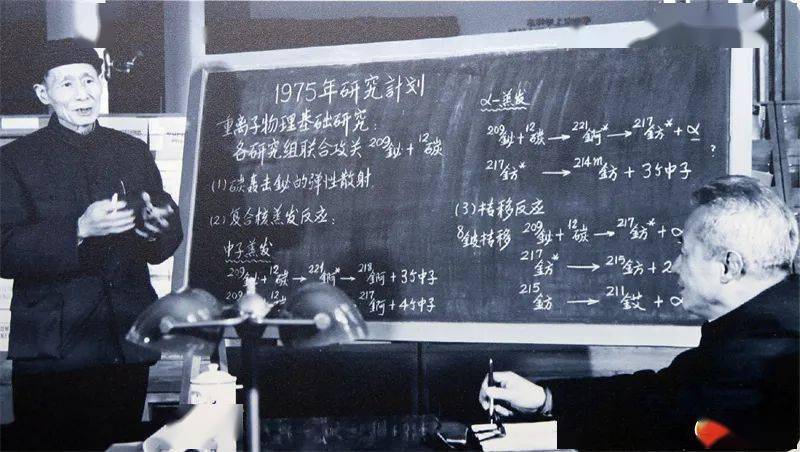 1975年研究計划
重离子物理基础研究:
各研究组联合攻关 ²⁰⁹鉍+¹²碳
(1)碳轰击鉍的弹性散射
(2)复合核蒸发反应:
中子蒸发
²⁰⁹鉍+¹²碳→²²¹錒*→²¹⁸錒+3个中子
²⁰⁹ ¹²碳 ²¹⁷錒+4个中子
α—蒸发
²⁰⁹鉍+¹²碳→²²¹錒*→²¹⁷鈁*+α
²¹⁷鈁*→²¹⁴ᵐ鈁+3个中子 ?
(3)转移反应
⁸鈹转移 ²⁰⁹鉍+¹²碳→²¹⁷鈁*+α
²¹⁷鈁*→²¹⁵鈁+2
²¹⁵鈁→²¹¹ +α